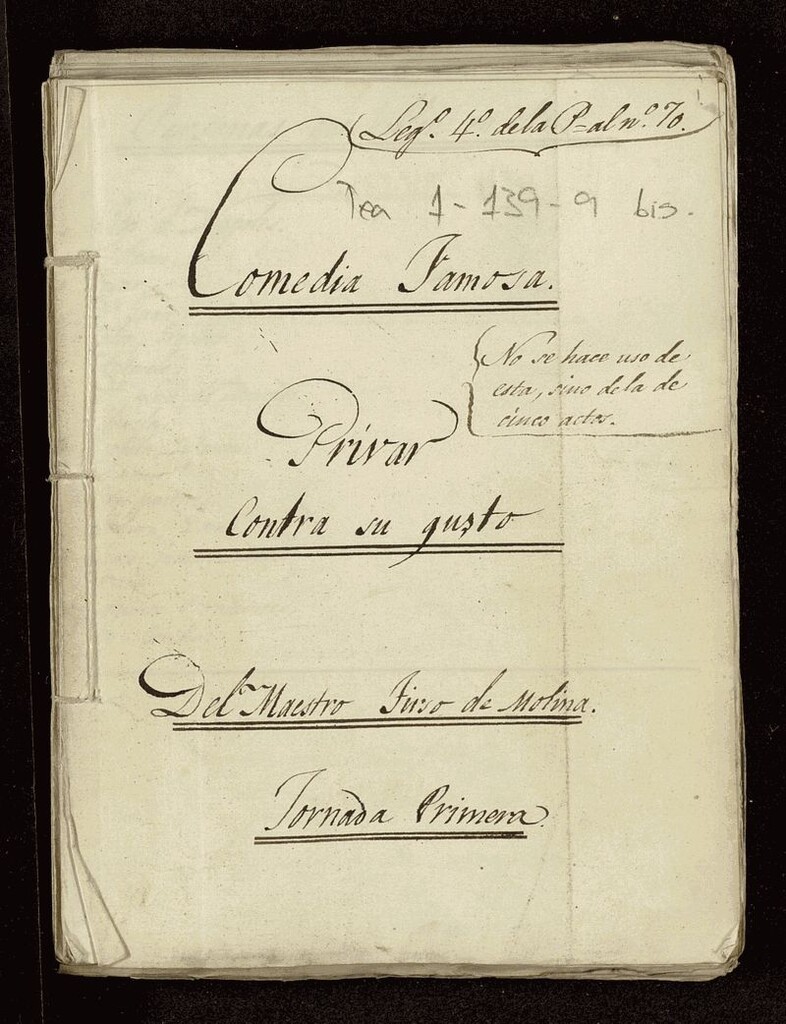 Leg.º 4.º de la P= al n.º 70.
Tea 1-139-9 bis.
Comedia Famosa.
No se hace uso de
esta, sino de la de
cinco actos.
Privar
Contra su gusto
Del Maestro Tirso de Molina.
Jornada Primera.